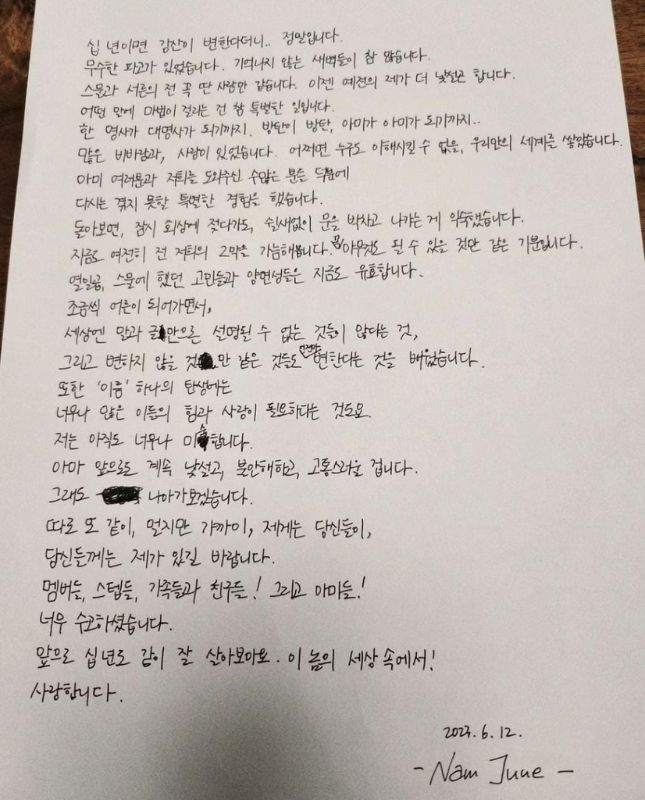 십 년이면 강산이 변한다더니.. 정말입니다.
무수한 파고가 있었습니다. 기억나지 않는 새벽들이 참 많습니다.
스물과 서른의 전 꼭 딴 사람만 같습니다. 이젠 예전의 제가 더 낯설곤 합니다.
어떤 만에 마법이 걸리는 건 참 특별한 일입니다.
한 명사가 대명사가 되기까지. 방탄이 방탄, 아미가 아미가 되기까지..
많은 비바람과, 사랑이 있었습니다. 어쩌면 누구도 이해시킬 수 없을, 우리만의 세계를 쌓았습니다.
아미 여러분과 저희를 도와주신 수많은 분들 덕분에
다시는 겪지 못할 특별한 경험을 했습니다.
돌아보면, 잠시 회상에 젖다가도, 쉴새없이 문을 박차고 나가는 게 익숙했습니다.
지금도 여전히 전 저희의 2막을 가늠해봅니다. 꼭 아무것도 될 수 있을 것만 같은 기분입니다.
열일곱, 스물에 했던 고민들과 양면성들은 지금도 유효합니다.
조금씩 어른이 되어가면서,
세상엔 말과 글만으로 설명될 수 없는 것들이 많다는 것,
그리고 변하지 않을 것만 같은 것들도 언젠가 변한다는 것을 배웠습니다.
또한 '이름' 하나의 탄생에는
너무나 많은 이들의 힘과 사랑이 필요하다는 것도요.
저는 아직도 너무나 미숙합니다.
아마 앞으로도 계속 낯설고, 불안해하고, 고통스러울 겁니다.
그래도 나아가보겠습니다.
따로 또 같이, 멀지만 가까이, 제게는 당신들이,
당신들께는 제가 있길 바랍니다.
멤버들, 스텝들, 가족들과 친구들! 그리고 아미들!
너무 수고하셨습니다.
앞으로 십년도 같이 잘 살아보아요. 이 놈의 세상 속에서!
사랑합니다.
2023. 6. 12.
- Nam June -